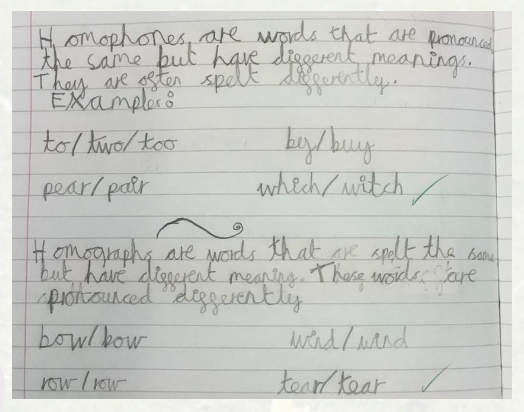 Homophones are words that are pronounced
the same but have different meanings.
They are often spelt differently.
Examples:
to/two/too by/buy
pear/pair which/witch
Homographs are words that are spelt the same
but have different meaning. These words are
pronounced differently
bow/bow wind/wind
row/row tear/tear